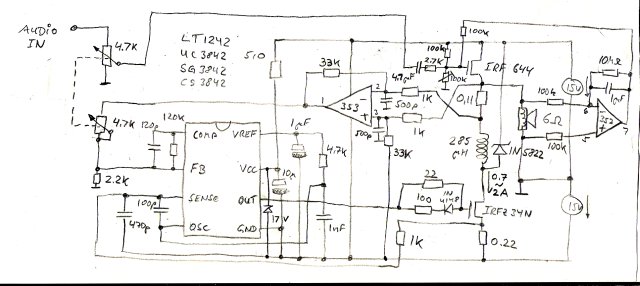 AUDIO
IN
4.7K
LT1242
UC3842
SG3842
CS3842
510
33K
4.7µF
2.7K
100K
100K
100K
IRF 644
10MΩ
1µF
15V
100K
6Ω
100K
353
352
1
2
3
6
5
7
500p
500p
1K
1K
0,11
33K
285
µH
1N
5822
0.7
~
2A
15V
4.7K
120p
120K
COMP
VREF
1µF
4.7K
FB
VCC
10µ
2.2K
SENSE
OUT
17V
OSC
GND
100p
470p
1nF
22
100
1N
4148
IRFZ34N
1K
0.22